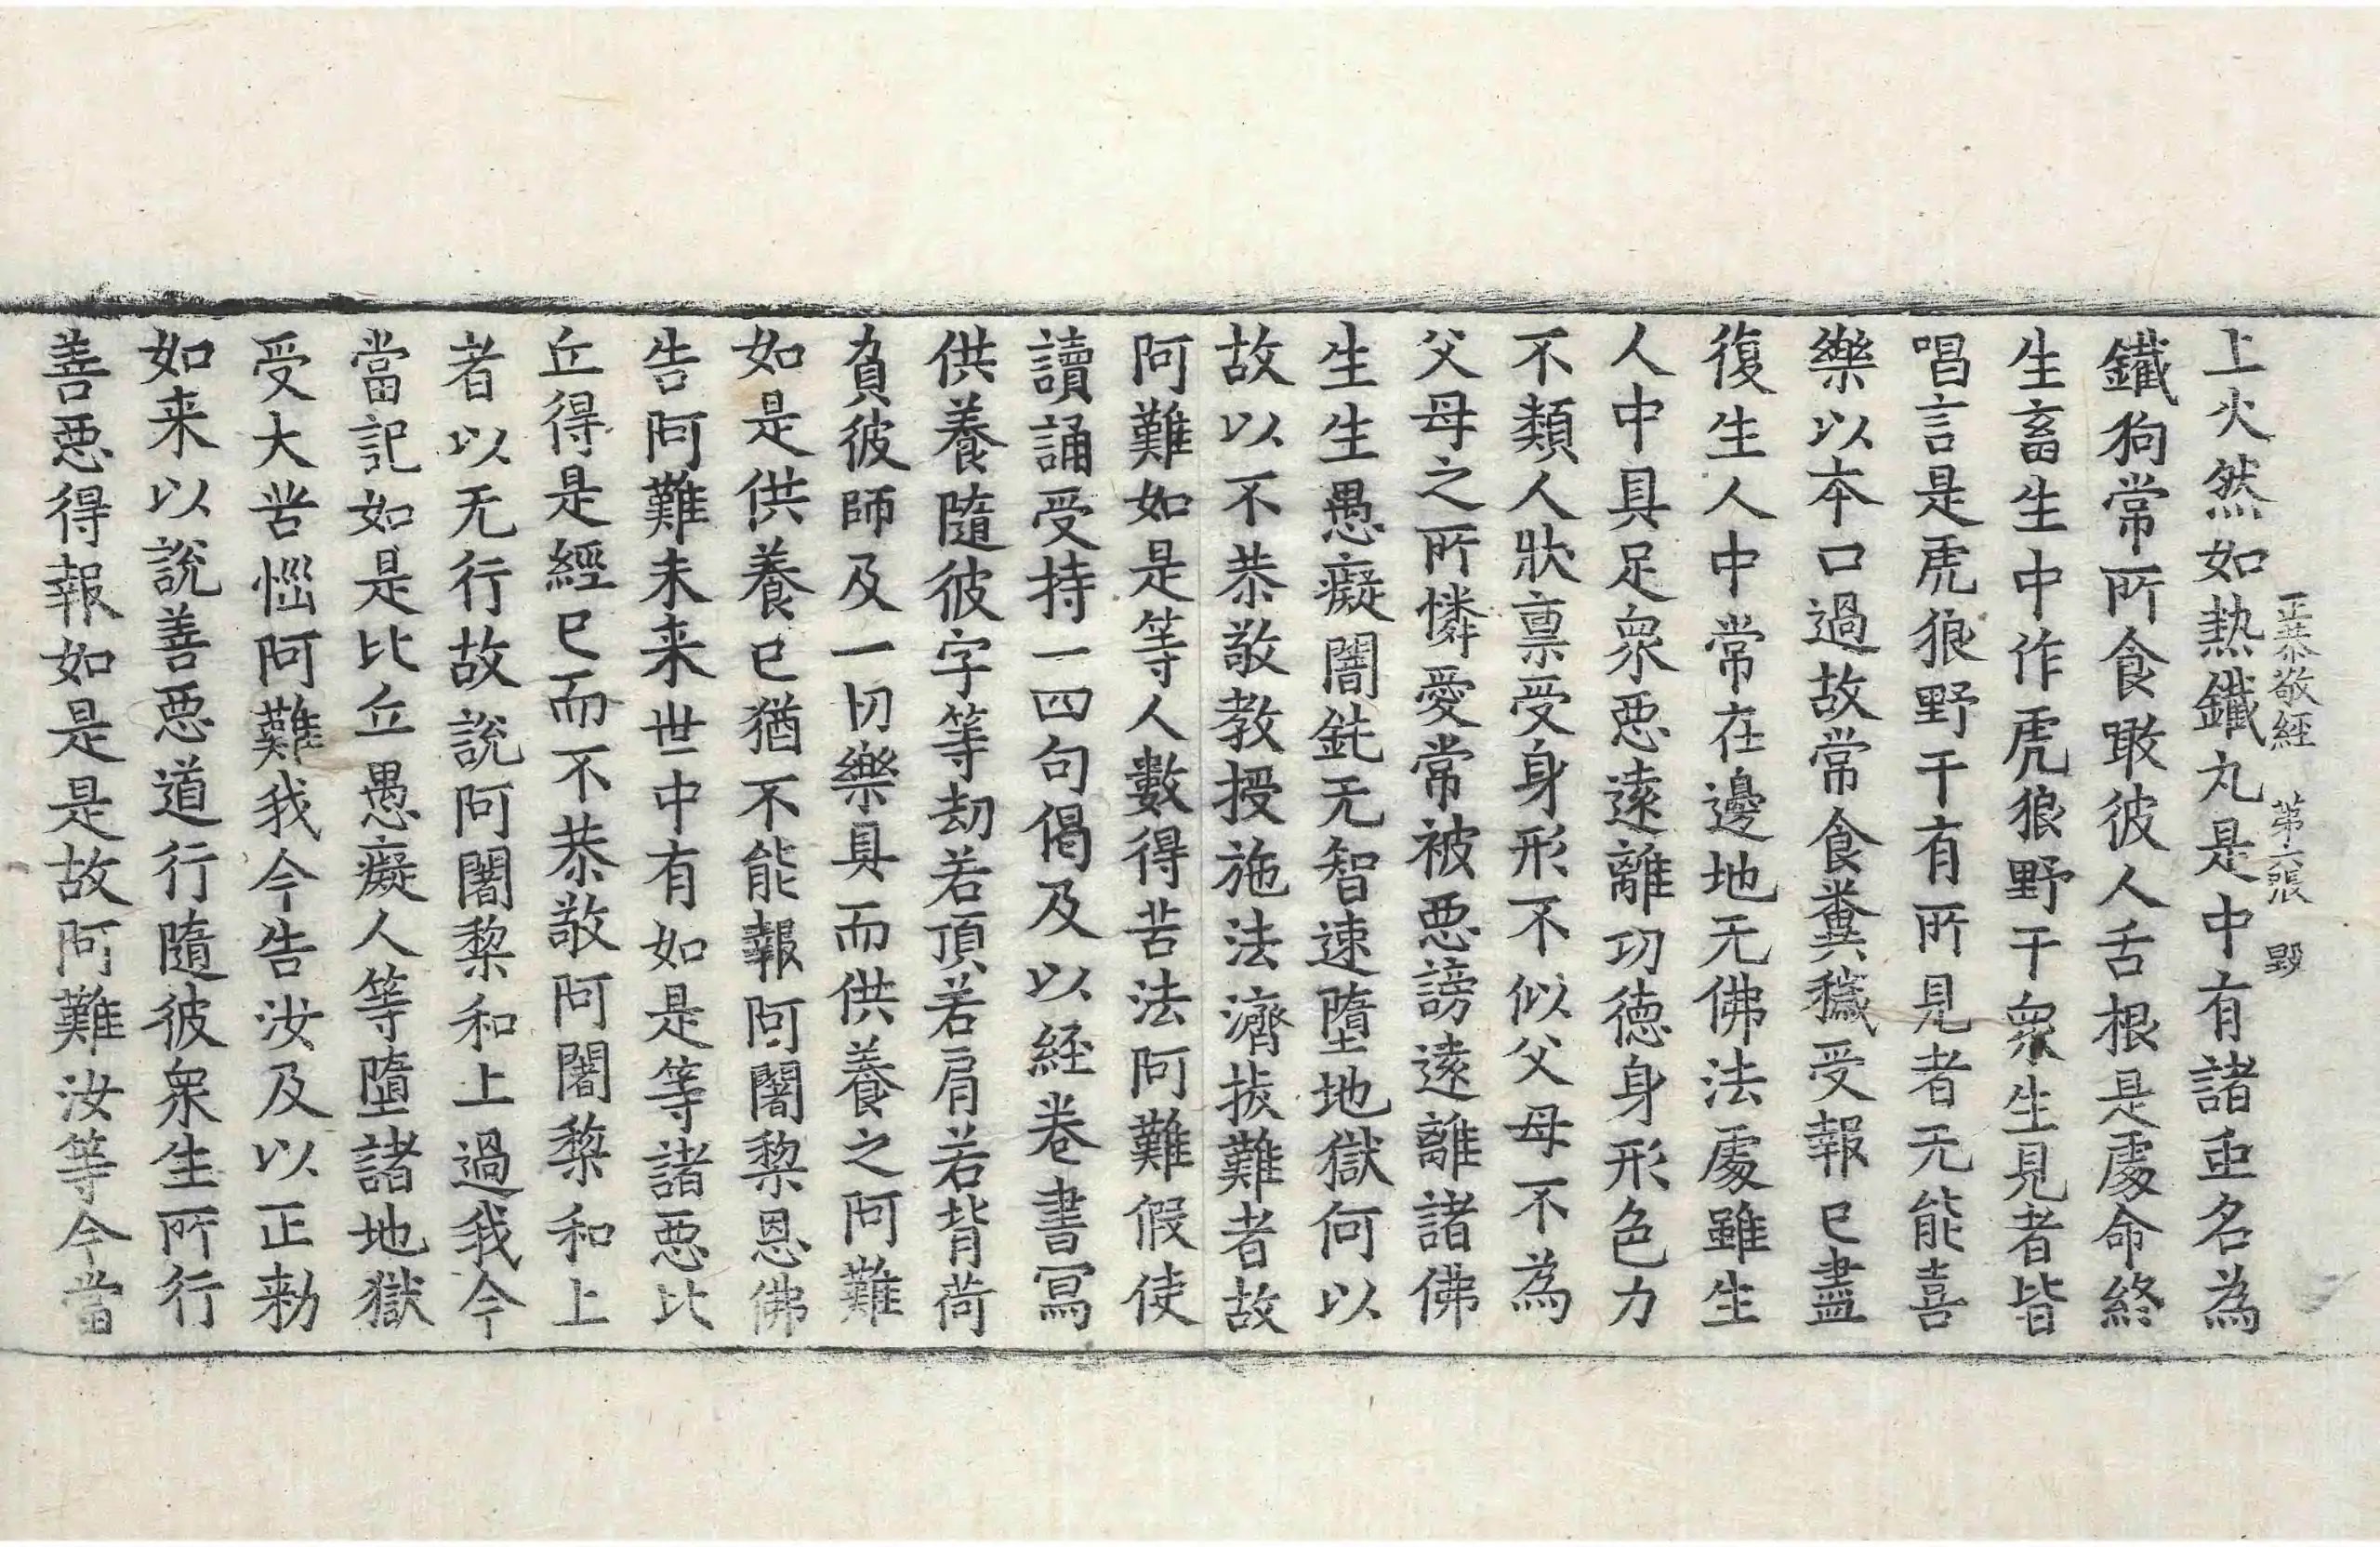 正恭敬經　第六張　毀
上火然如熱鐵丸是中有諸䖝名為
鐵狗常所食噉彼人舌根是處命終
生畜生中作虎狼野干衆生見者皆
唱言是虎狼野干有所見者无能喜
樂以本口過故常食糞穢受報已盡
復生人中常在邊地无佛法處雖生
人中具足衆惡遠離功德身形色力
不類人狀禀受身形不似父母不為
父母之所憐愛常被惡謗遠離諸佛
生生愚癡闇鈍无智速墮地獄何以
故以不恭敬教授施法濟拔難者故
阿難如是等人數得苦法阿難假使
讀誦受持一四句偈及以経卷書寫
供養隨彼字等劫若頂若肩若背荷
負彼師及一切樂具而供養之阿難
如是供養已猶不能報阿闍黎恩佛
告阿難未来世中有如是等諸惡比
丘得是經已而不恭敬阿闍黎和上
者以无行故說阿闍黎和上過我今
當記如是比丘愚癡人等墮諸地獄
受大苦惱阿難我今告汝及以正勑
如来以說善惡道行隨彼衆生所行
善惡得報如是是故阿難汝等今當